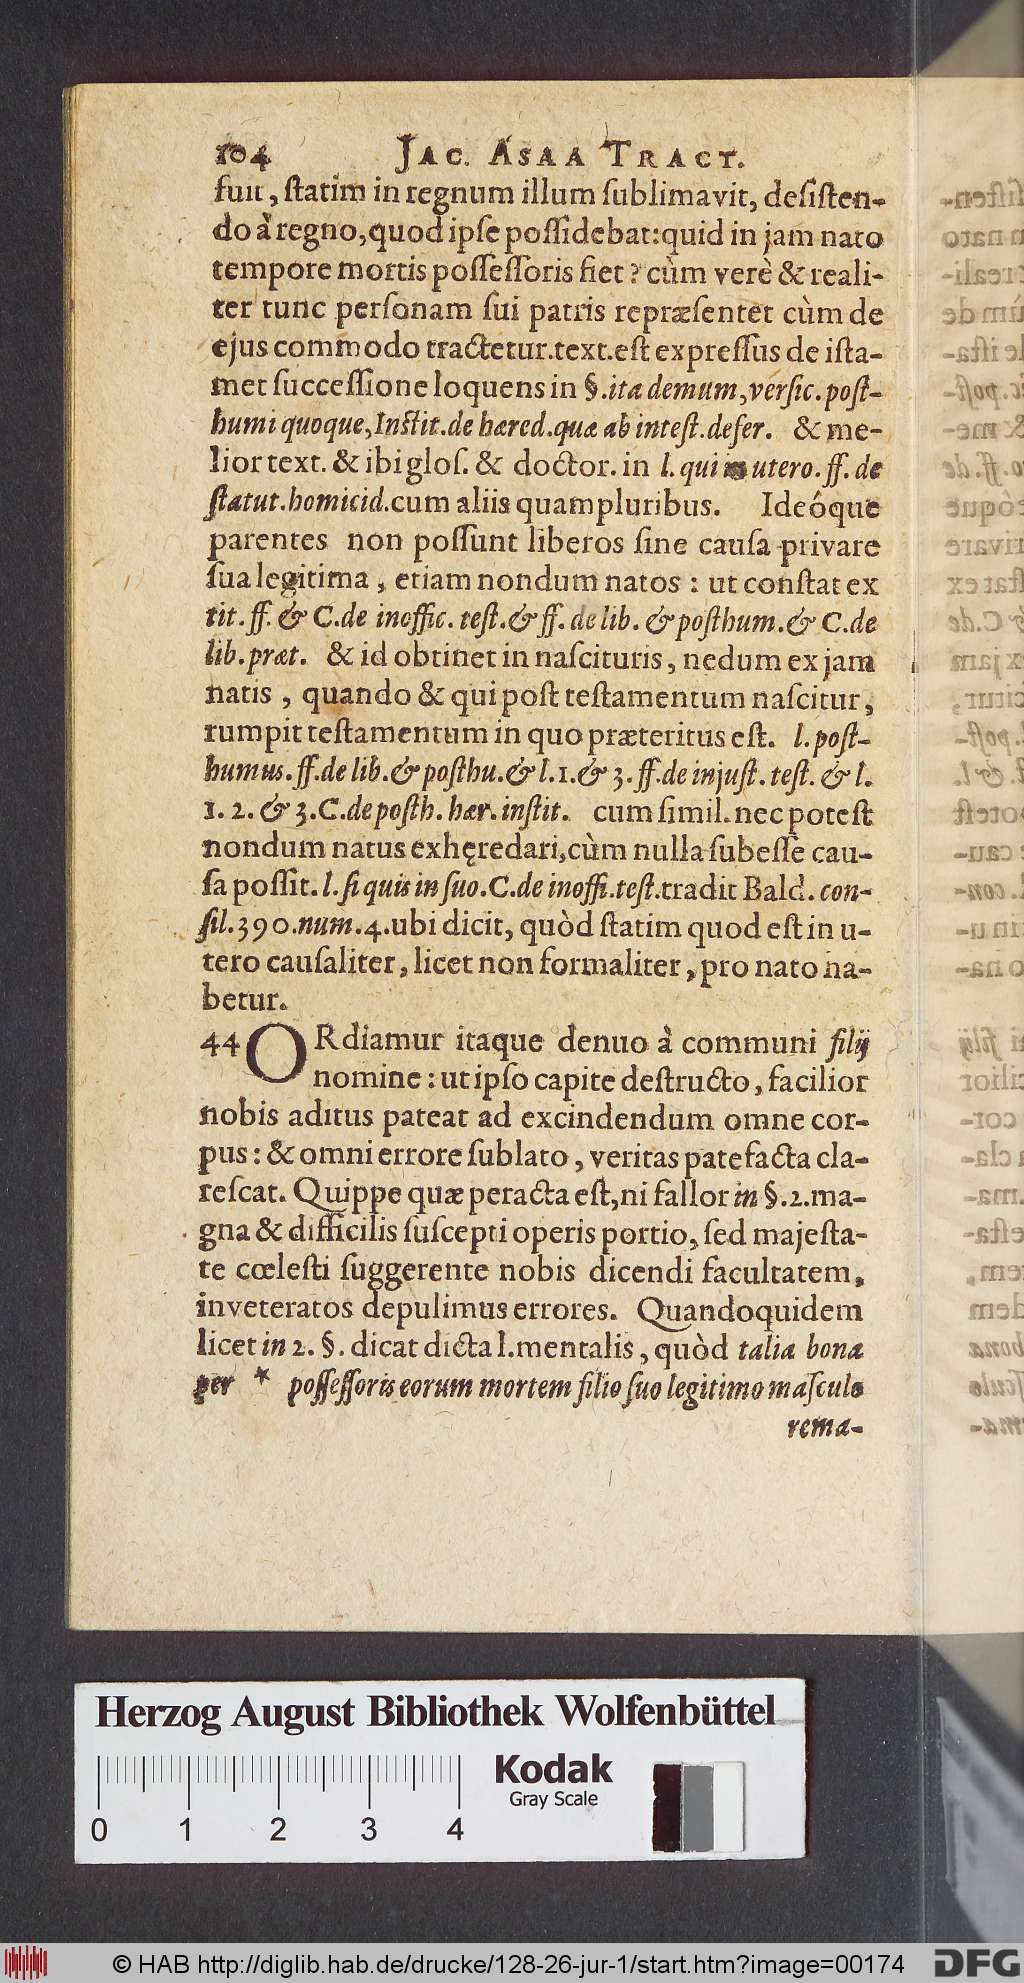 104 JAC. ASAA TRACT.
fuit, ſtatim in regnum illum ſublimavit, deſiſten-
do à regno, quod ipſe poſſidebat: quid in jam nato
tempore mortis poſſeſſoris fiet? cùm verè & reali-
ter tunc perſonam ſui patris repræſentet cùm de
ejus commodo tractetur. text. eſt expreſſus de iſta-
met ſucceſſione loquens in §. ita demum, verſic. poſt-
humi quoque, Inſtit. de hæred. quæ ab inteſt. defer. & me-
lior text. & ibi gloſ. & doctor. in l. qui in utero. ff. de
ſtatut. homicid. cum aliis quampluribus. Ideóque
parentes non poſſunt liberos ſine cauſa privare
ſua legitima, etiam nondum natos: ut conſtat ex
tit. ff. & C. de inoffic. teſt. & ff. de lib. & poſthum. & C. de
lib. præt. & id obtinet in naſcituris, nedum ex jam
natis, quando & qui poſt teſtamentum naſcitur,
rumpit teſtamentum in quo præteritus eſt. l. poſt-
humus. ff. de lib. & poſthu. & l. 1. & 3. ff. de injuſt. teſt. & l.
1. 2. & 3. C. de poſth. hær. inſtit. cum ſimil. nec poteſt
nondum natus exhęredari, cùm nulla ſubeſſe cau-
ſa poſſit. l. ſi quis in ſuo. C. de inoffi. teſt. tradit Bald. con-
ſil. 390. num. 4. ubi dicit, quòd ſtatim quod eſt in u-
tero cauſaliter, licet non formaliter, pro nato ha-
betur.
44 ORdiamur itaque denuo à communi filij
nomine: ut ipſo capite deſtructo, facilior
nobis aditus pateat ad excindendum omne cor-
pus: & omni errore ſublato, veritas patefacta cla-
reſcat. Quippe quæ peracta eſt, ni fallor in §. 2. ma-
gna & difficilis ſuſcepti operis portio, ſed majeſta-
te cœleſti ſuggerente nobis dicendi facultatem,
inveteratos depulimus errores. Quandoquidem
licet in 2. §. dicat dicta l. mentalis, quòd talia bona
per * poſſeſſoris eorum mortem filio ſuo legitimo maſculo
rema-
Herzog August Bibliothek Wolfenbüttel
Kodak
Gray Scale
0 1 2 3 4
© HAB http://diglib.hab.de/drucke/128-26-jur-1/start.htm?image=00174
DFG